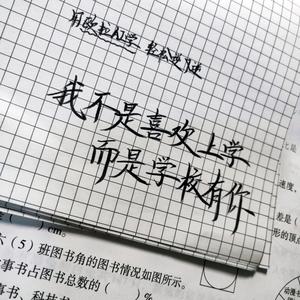 用欧拉AI学 轻松提速
我不是喜欢上学
而是学校有你
速度
差是
形的顶点
动漫书
(5)班图书角的图书情况如图所示。
事书占图书总数的(
%
书、科技书